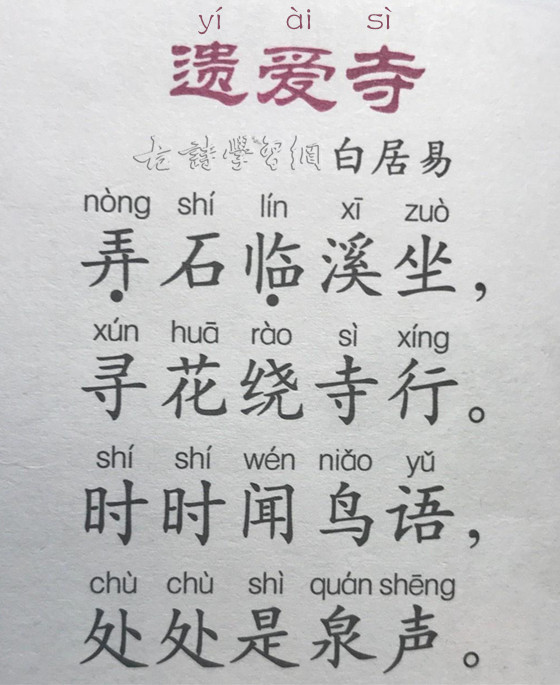 yí ài sì
遗爱寺
古诗学习网 白居易
nòng shí lín xī zuò
弄石临溪坐，
xún huā rào sì xíng
寻花绕寺行。
shí shí wén niǎo yǔ
时时闻鸟语，
chù chù shì quán shēng
处处是泉声。